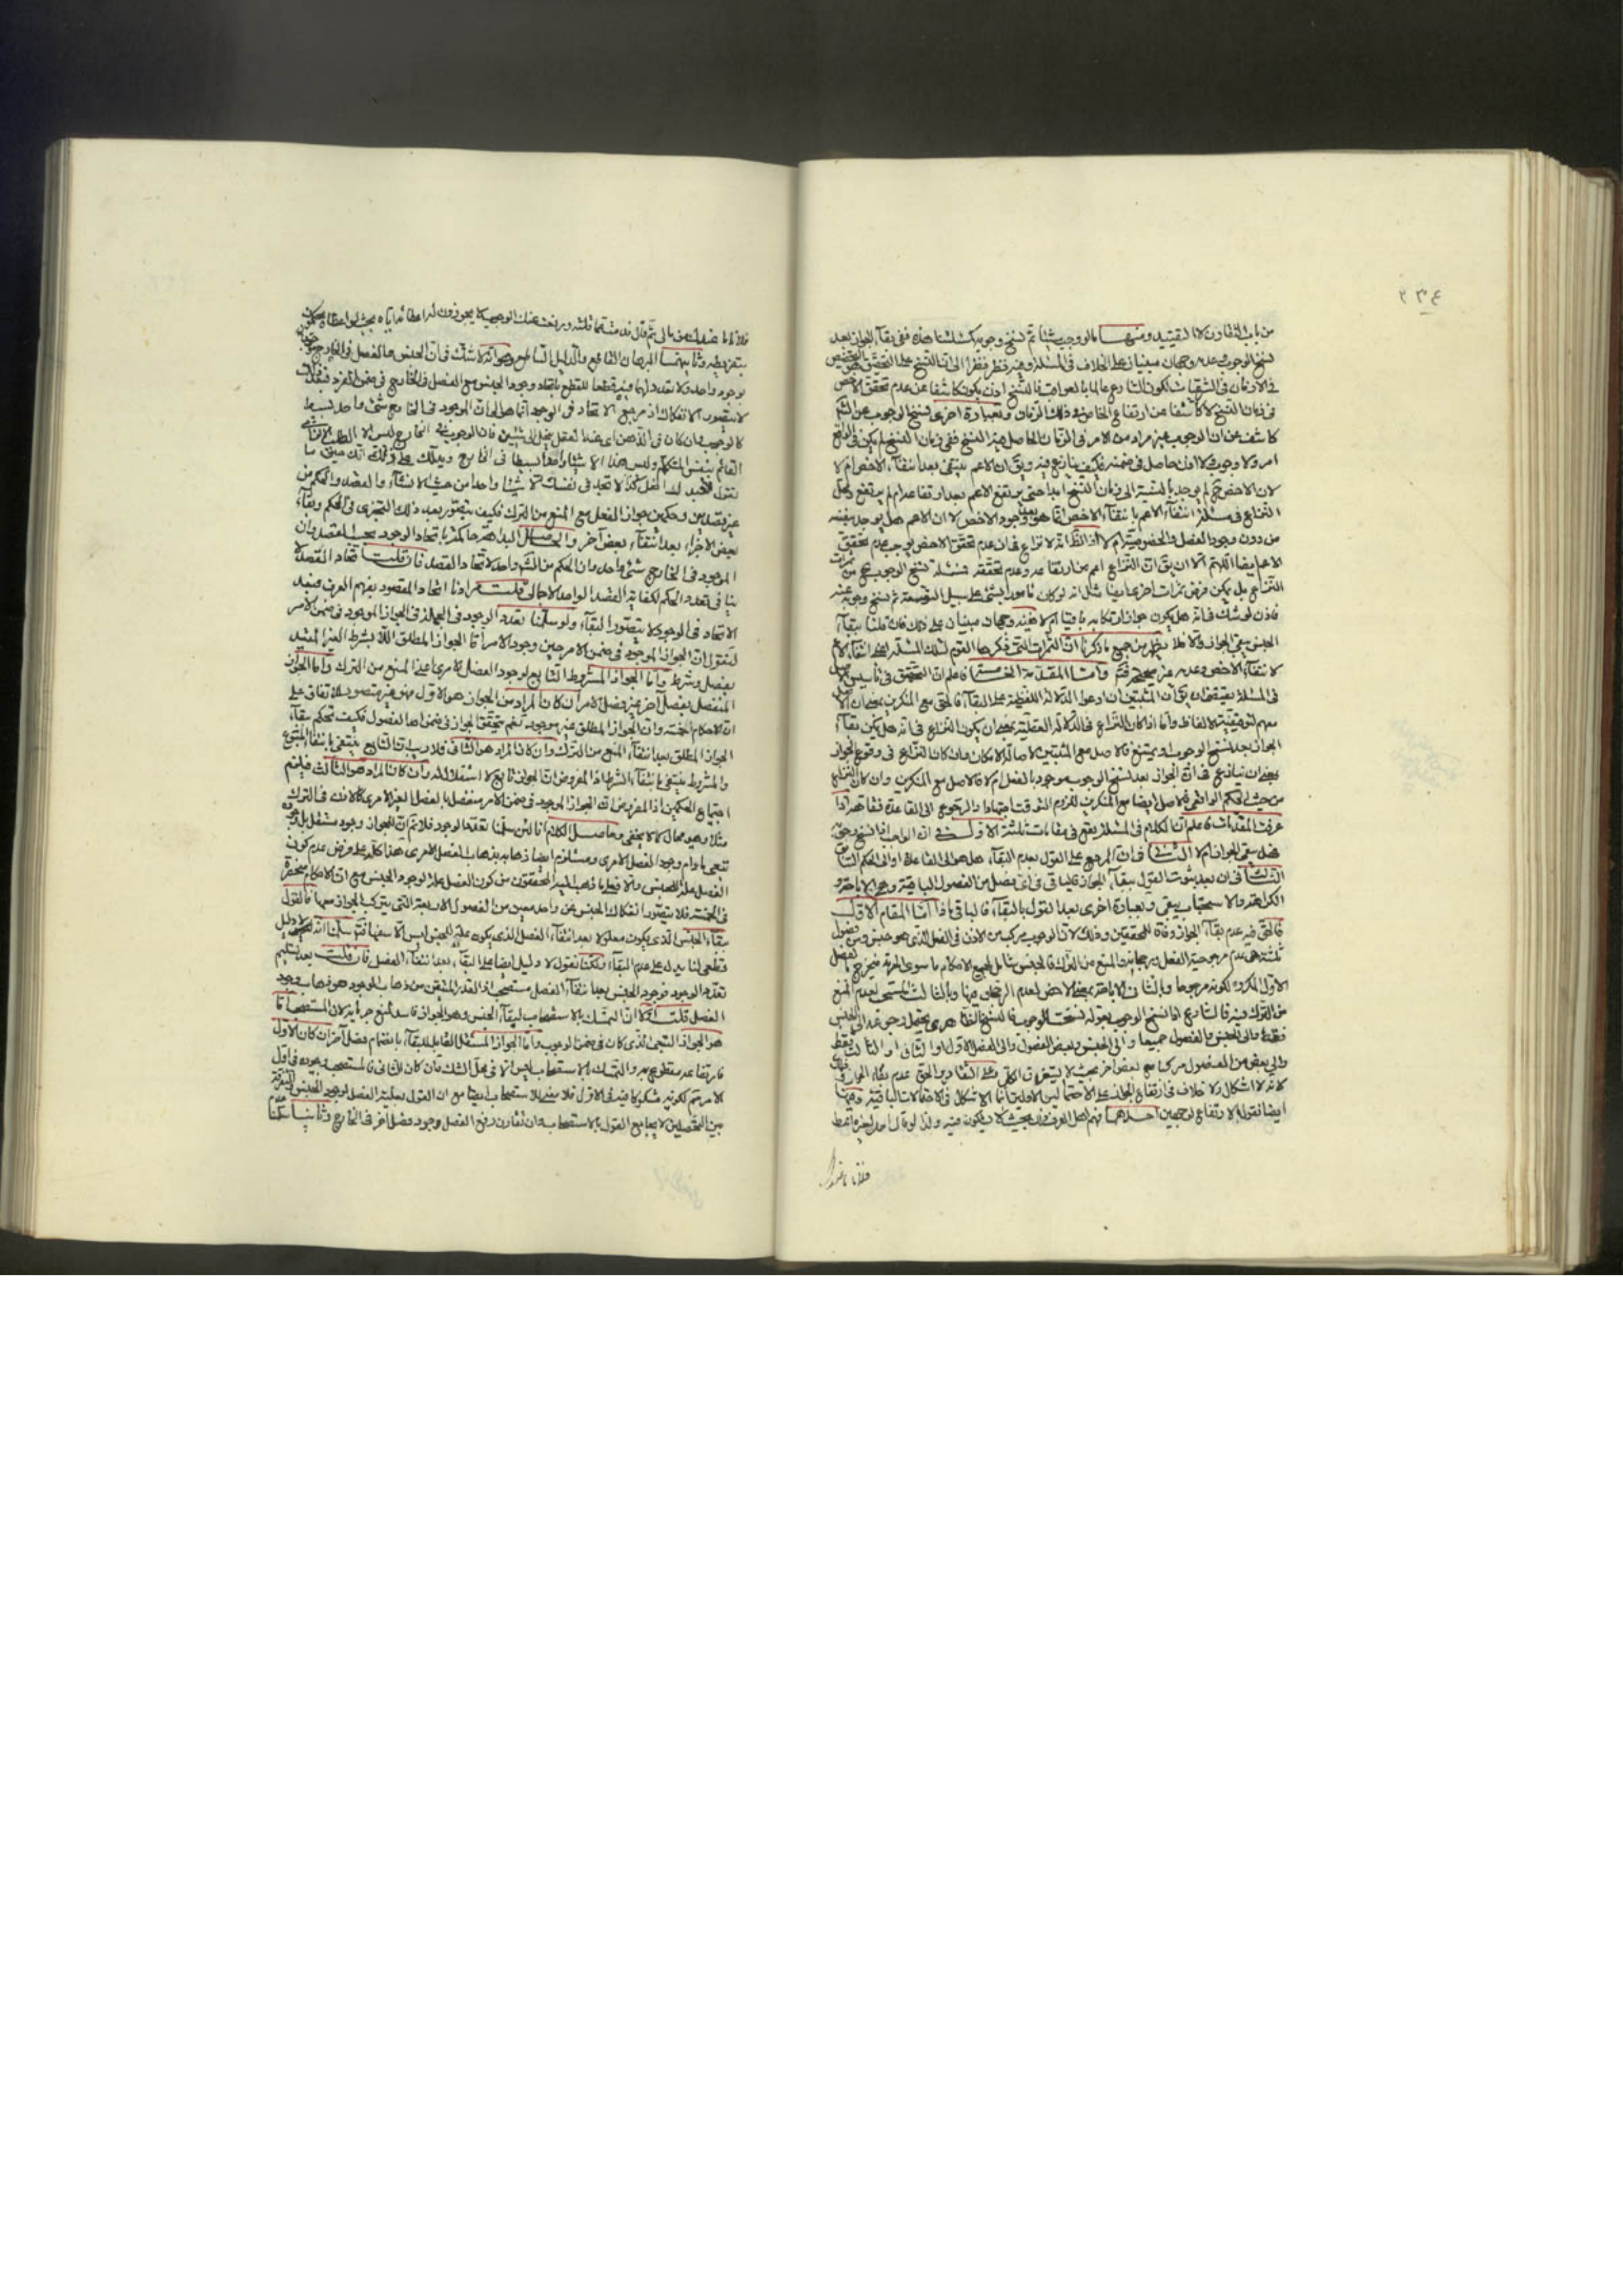 ٢٣٤
من باب التقارن لا التقييد ومنها ما لو وجب شيئا ثم نسخ وجوبه كمسئلتنا هذه ففى بقآء الجواز بعد
نسخ الوجوب وعدمه وجهان مبنيان على الخلاف فى المسئلة وفيه نظر
فى الازمان فى الشرعيات لكون الشارع عالما بالعواقب فالنسخ اذن يكون كاشفا عن عدم تحقق الاخص
فى زمان النسخ لا كاشفا عن ارتفاع الخاص فى ذلك الزمان وبعبارة اخرى نسخ الوجوب عن الشئ
كاشف عن ان الوجوب غير مراد من الامر فى الزمان الحاصل فيه النسخ ففى زمان النسخ لم يكن فى الواقع
امر ولا وجوب ولا اذن حاصل فى ضمنه فكيف ينازع فيه ويق ان الاعم ينتفى بعد انتفآء الاخص ام لا
لان الاخص لم يوجد بالنسبة الى زمان النسخ ابدا حتى يرتفع الاعم بعد ارتفاعه ام لم يرتفع ومحل
النزاع فى مسئلة انتفآء الاعم بانتفآء الاخص انما هو بعد وجود الاخص لا ان الاعم هل يوجد بنفسه
من دون وجود الفصل والخصوصية ام لا اذ الظ انه لا نزاع فى ان عدم تحقق الاخص يوجب عدم تحقق
الاعم ايضا اللهم الا ان يق ان النزاع اعم من ارتفاعه وعدم تحققه فمسئلة نسخ الوجوب هى من ثمرات
النزاع بل يمكن فرض ثمرات اخرى ايضا مثل انه لو كان مامورا بشئ على سبيل التوسعة ثم نسخ وجوبه عنه
الجنس يبقى الجواز والا فلا
لانتفآء الاخص وعدمه غير صحيح فتم واما المقدمة الخامسة فاعلم ان التحقيق فى تاسيس الاصل
فى المسئلة يقتضى ان يق ان المثبتين ان ادعوا الدلالة اللفظية على البقآء فالحق مع المنكرين بمعنى ان الاصل
معهم لتوقيفية الالفاظ واما اذا كان النزاع فى الدلالة العقلية بمعنى ان يكون النزاع فى انه هل يمكن بقآء
الجواز بعد نسخ الوجوب او يمتنع فالاصل مع المثبتين لاصالة الامكان وان كان النزاع فى وقوع الجواز
بمعنى ان نيازع فى ان الجواز بعد نسخ الوجوب موجود بالفعل ام لا فالاصل مع المنكرين وان كان النزاع
من حيث الحكم الواقعى فالاصل ايضا مع المنكرين للزوم التوقف اجتهادا والرجوع الى القاعدة فقاهة اذا
عرفت المقدمات فاعلم ان الكلام فى المسئلة يقع فى مقامات ثلثة الاول فى ان الواجب اذا نسخ وجوبه
فهل يبقى الجواز ام لا الثانى فى ان المرجع على القول بعدم البقآء هل هو الى القاعدة او الى الحكم السابق
الثالث فى ان بعد ثبوت القول ببقآء الجواز فالباقى فى اى فصل من الفصول الباقية وهى الاباحة و
الكراهة والاستحباب يبقى وبعبارة اخرى بعد القول بالبقآء فالباقى ماذا اما المقام الاول
فالحق فيه عدم بقآء الجواز وفاقا للمحققين وذلك لان الوجوب مركب من الاذن فى الفعل الذى هو جنس ومن فصول
ثلثة هى عدم مرجوحية الفعل ورجحانه والمنع من الترك فالجنس شامل لجميع الاحكام ما سوى الحرمة فيخرج بالفصل
الاول المكروه لكونه مرجوحا وبالثانى الاباحة بمعنى الاخص لعدم الرجحان فيها وبالثالث المستحب لعدم المنع
من الترك فيه فالشارع اذا نسخ الوجوب بقوله نسخت الوجوب فالنسخ الظاهرى يحتمل رجوعه الى الجنس
فقط والى الجنس والفصول جميعا والى الجنس وبعض الفصول والى الفصل الاول او الثانى او الثالث فقط
والى بعض من الفصول مركبا مع بعض اخر بحيث لا يستغرق الكل
لانه لا اشكال ولا خلاف فى ارتفاع الجواز على الاحتمالين الاولين انما الاشكال فى الاحتمالات الباقية وفيها
ايضا نقول بالارتفاع لوجهين احدهما فهم اهل العرف ذلك بحيث لا يشكون فيه ولذا لو قال احد لغيره اعط
فلانا ما عندك
فلانا ما عندك من مالى ثم قال قد نسخت
بتفريطه وثانيهما البرهان القاطع والدليل الساطع وهو انه لا شك فى ان الجنس والفصل فى الخارج
بوجود واحد ولا تعدد لهما فيه قطعا للقطع باتحاد وجود الجنس مع الفصل فى الخارج فى ضمن الفرد
لا يتصور الانفكاك اذ مرجع الاتحاد فى الوجود انما هو الى ان الموجود فى الخارج شئ واحد بسيط
كالوجوب وان كان فى الذهن اى عند العقل ينحل الى شيئين فان الوجوب فى الخارج ليس الا الطلب
القائم بنفس المتكلم وليس هذا الا شيئا واحدا بسيطا فى الخارج ويدلك على ذلك انك حين ما
تقول لعبدك افعل كذا لا تجد فى نفسك الا شيئا واحدا من حيث الانشآء والقصد والحكم من
غير قصدين وحكمين جواز الفعل مع المنع من الترك فكيف يتصور بعد ذلك التجزى فى الحكم وبقآء
بعض الاجزآء بعد انتفآء بعض آخر والحاصل ان البداهة حاكمة باتحاد الوجود بحسب القصد وان
الموجود فى الخارج شئ واحد وان الحكم من الشارع واحد لاتحاد القصد فان قلت اتحاد القصد لا
ينافى تعدد الحكم لكفاية القصد الواحد الاجمالى قلت مرادنا اتحاد المقصود بفهم العرف فبعد
الاتحاد فى الوجود لا يتصور البقآء ولو سلمنا تعدد الوجود فى الجملة
فنقول ان الجواز الموجود فى ضمن الامر حين وجود الامر اما الجواز المطلق اللا بشرط الغير المقيد
بفصل وشرط واما الجواز المشروط التابع لوجود الفصل الامرى اعنى المنع من الترك واما الجواز
المنفصل بفصل آخر غير فصل الامر ان كان المراد من الجواز هو الاول فهو غير متصور للاتفاق على
ان الاحكام خمسة وان الجواز المطلق غير موجود نعم يتحقق الجواز فى ضمن احد الفصول فكيف تحكم ببقآء
الجواز المطلق بعد انتفآء المنع من الترك وان كان المراد هو الثانى فلا ريب ان التابع ينتفى بانتفآء المتبوع
والمشروط ينتفى بانتفآء الشرط اذ المفروض ان الجواز تابع لا استقلال له وان كان المراد هو الثالث فيلزم
اجتماع الحكمين اذ المفروض ان الجواز الموجود فى ضمن الامر منفصل بالفصل الغير الامرى
مثلا وهو محال كما لا يخفى وحاصل الكلام انا لئن سلمنا تعدد الوجود فلا نم ان للجواز وجود مستقل بل هو
تبعى ما دام وجود الفصل الامرى ومستلزم ايضا ذهابه بذهاب الفصل الامرى هذا كله على فرض عدم كون
الفصل علة للجنس والا فعلى ما ذهب اليه المحققون من كون الفصل علة لوجود الجنس مع ان الاحكام منحصرة
فى الخمسة فلا يتصور انفكاك الجنس عن واحد معين من الفصول الاربعة التى يتركب الجواز معها فالقول
ببقآء الجنس الذى يكون معلولا بعد انتفآء الفصل الذى يكون علة للجنس ليس الا سفها ثم سلمنا انه لا دليل
قطعى لنا يدل على عدم البقآء ولكنا نقول لا دليل ايضا على البقآء بعد انتفآء الفصل فان قلت بعد تسليم
تعدد الوجود فوجود الجنس بعد انتفآء الفصل مستصحب اذ القدر المتيقن من ذهاب الوجود هو ذهاب وجود
الفصل قلت اولا ان التمسك بالاستصحاب لبقآء الجنس وهو الجواز فاسد لمنع جريانه لان المستصحب اما
هو الجواز التبعى الذى كان فى ضمن الوجوب واما الجواز المستقل القابل للبقآء بانضمام فصل آخر ان كان الاول
فارتفاعه مقطوع به والتمسك بالاستصحاب ليس الا فى محل الشك وان كان الثانى فالمستصحب وجوده فى اول
الامر ثم لكونه مشكوكا فيه فى الاول فلا معنى للاستصحاب ايضا مع ان القول بعلية الفصل لوجود الجنس
بين المفصلين لا يجامع القول بالاستصحاب وان تقارن رفع الفصل وجود فصل آخر فى الخارج وثانيا سلمنا